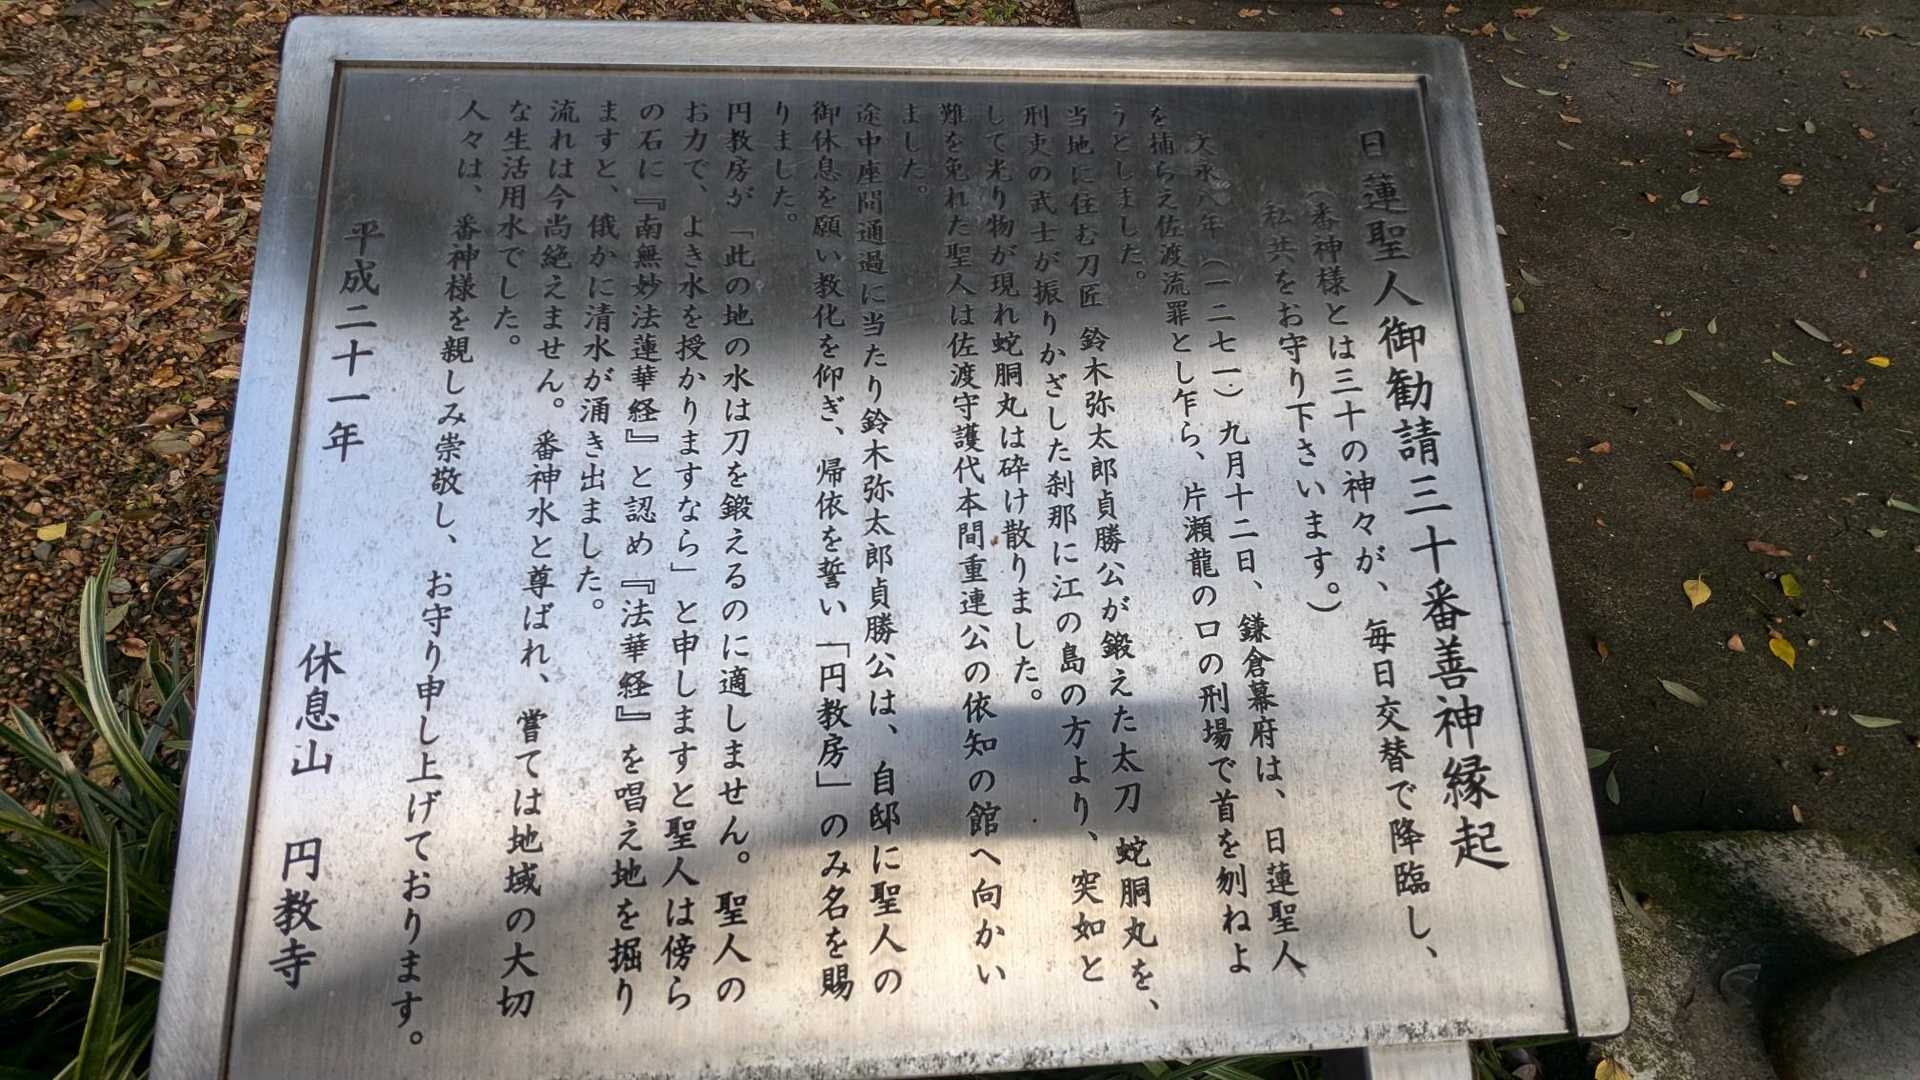 日蓮聖人御勧請三十番善神縁起
（番神様とは三十の神々が、毎日交替で降臨し、
私共をお守り下さいます。）
文永八年（一二七一）九月十二日、鎌倉幕府は、日蓮聖人
を捕らえ佐渡流罪とし乍ら、片瀬龍の口の刑場で首を刎ねよ
うとしました。
当地に住む刀匠 鈴木弥太郎貞勝公が鍛えた太刀 蛇胴丸を、
刑吏の武士が振りかざした刹那に江の島の方より、突如と
して光り物が現れ蛇胴丸は砕け散りました。
難を免れた聖人は佐渡守護代本間重連公の依知の館へ向かい
ました。
途中座間通過に当たり鈴木弥太郎貞勝公は、自邸に聖人の
御休息を願い教化を仰ぎ、帰依を誓い「円教房」のみ名を賜
りました。
円教房が「此の地の水は刀を鍛えるのに適しません。聖人の
お力で、よき水を授かりますなら」と申しますと聖人は傍ら
の石に『南無妙法蓮華経』と認め『法華経』を唱え地を掘り
ますと、俄かに清水が涌き出ました。
流れは今尚絶えません。番神水と尊ばれ、嘗ては地域の大切
な生活用水でした。
人々は、番神様を親しみ崇敬し、お守り申し上げております。
平成二十一年 休息山 円教寺